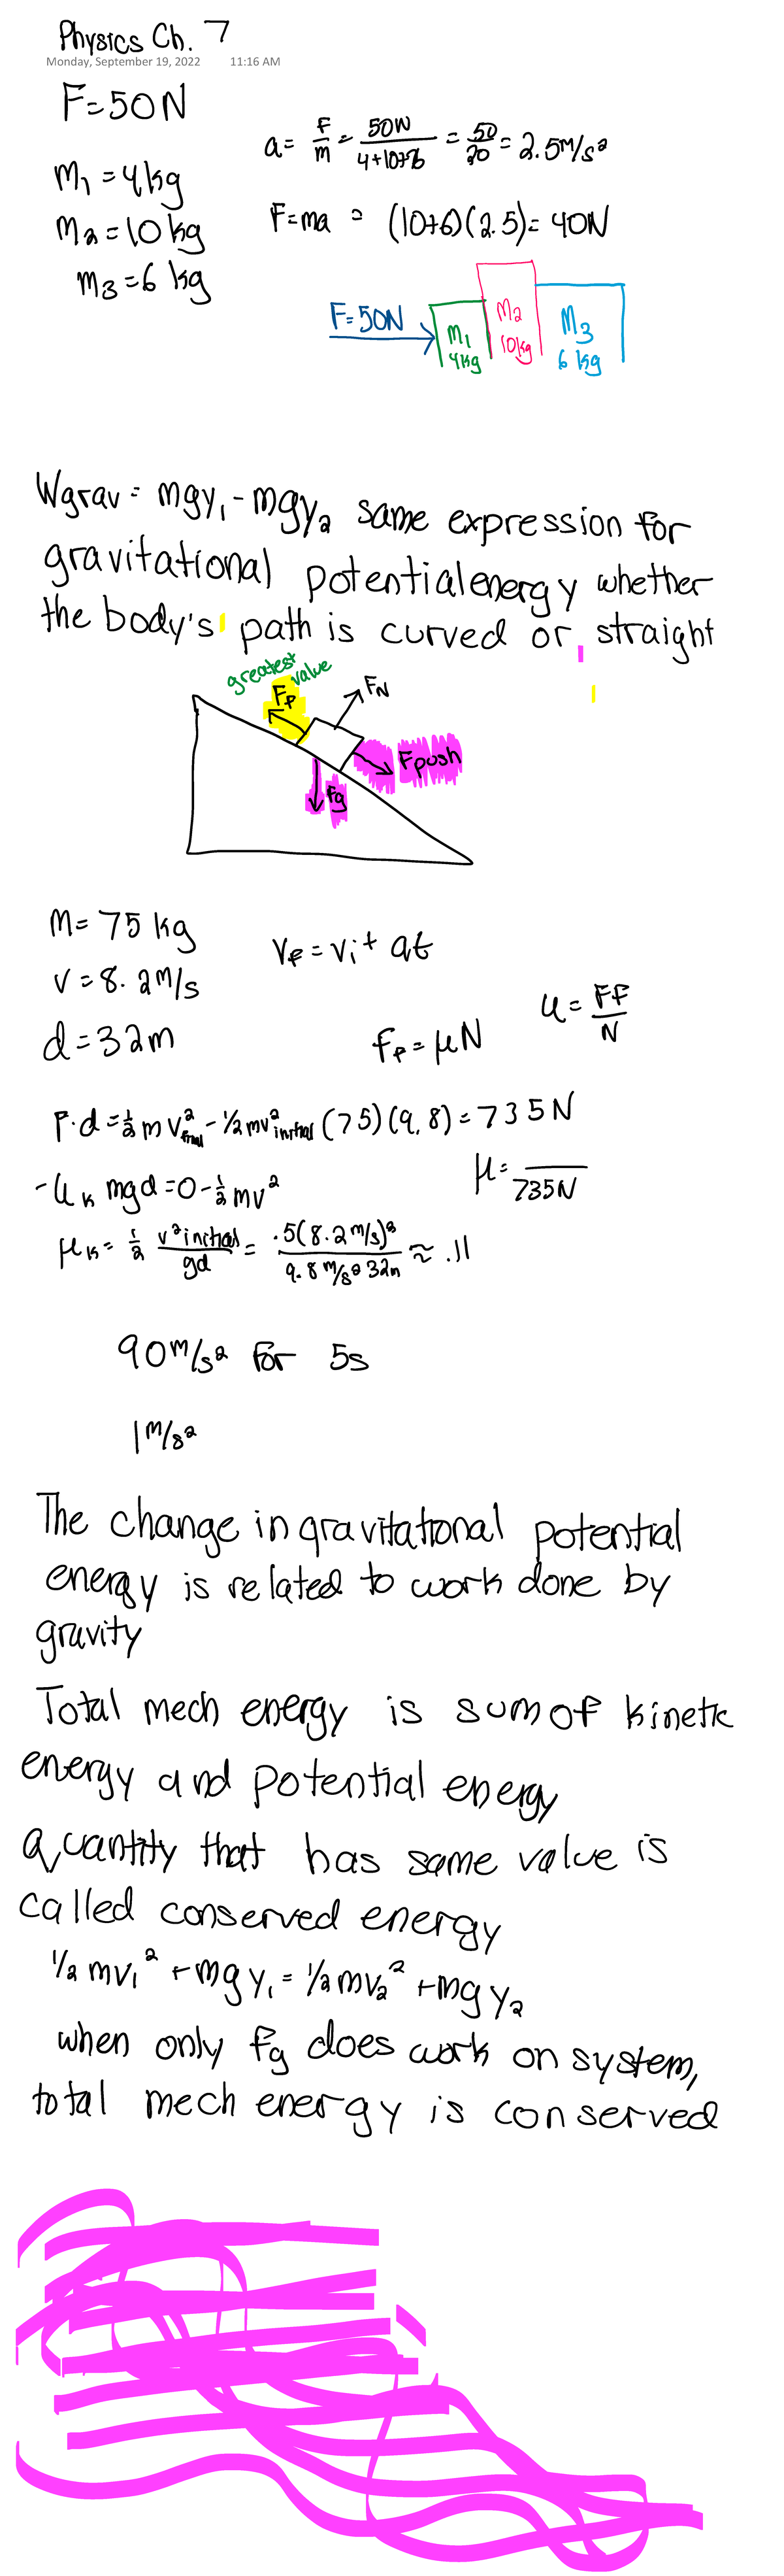 Physics Ch. 7
Monday, September 19, 2022 11:16 AM
F=50N
a= F/m = 50N/4+10+6 = 50/20 = 2.5m/s²
m₁ =4kg
m₂=10kg
F=ma = (10+6)(2.5)= 40N
m₃=6 kg
F=50N
m₁
4kg
m₂
10kg
m₃
6 kg
Wgrav = mgy₁-mgy₂ same expression for
gravitational potentialenergy whether
the body's path is curved or straight
greatest value
FF
FN
Fpush
Fg
m= 75 kg
v=8.2m/s
d=32m
Vf=Vi+ at
FF=μN
u= FF/N
F·d=½mv²final-½mv²initial (75)(9.8)=735N
-uₖ mgd=0-½mv²
μ= /735N
μₖ= ½ v²initial/gd = .5(8.2m/s)²/9.8m/s² 32m ≈ .11
90m/s² for 5s
1m/s²
The change in gravitational potential
energy is related to work done by
gravity
Total mech energy is sum of kinetic
energy and potential energy
quantity that has same value is
called conserved energy
½mv₁²+mgy₁=½mv₂²+mgy₂
when only fg does work on system,
total mech energy is conserved